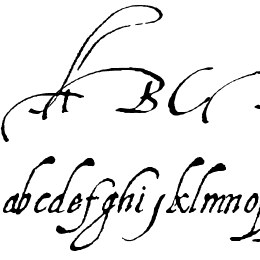 A B C
abcdefghijklmno